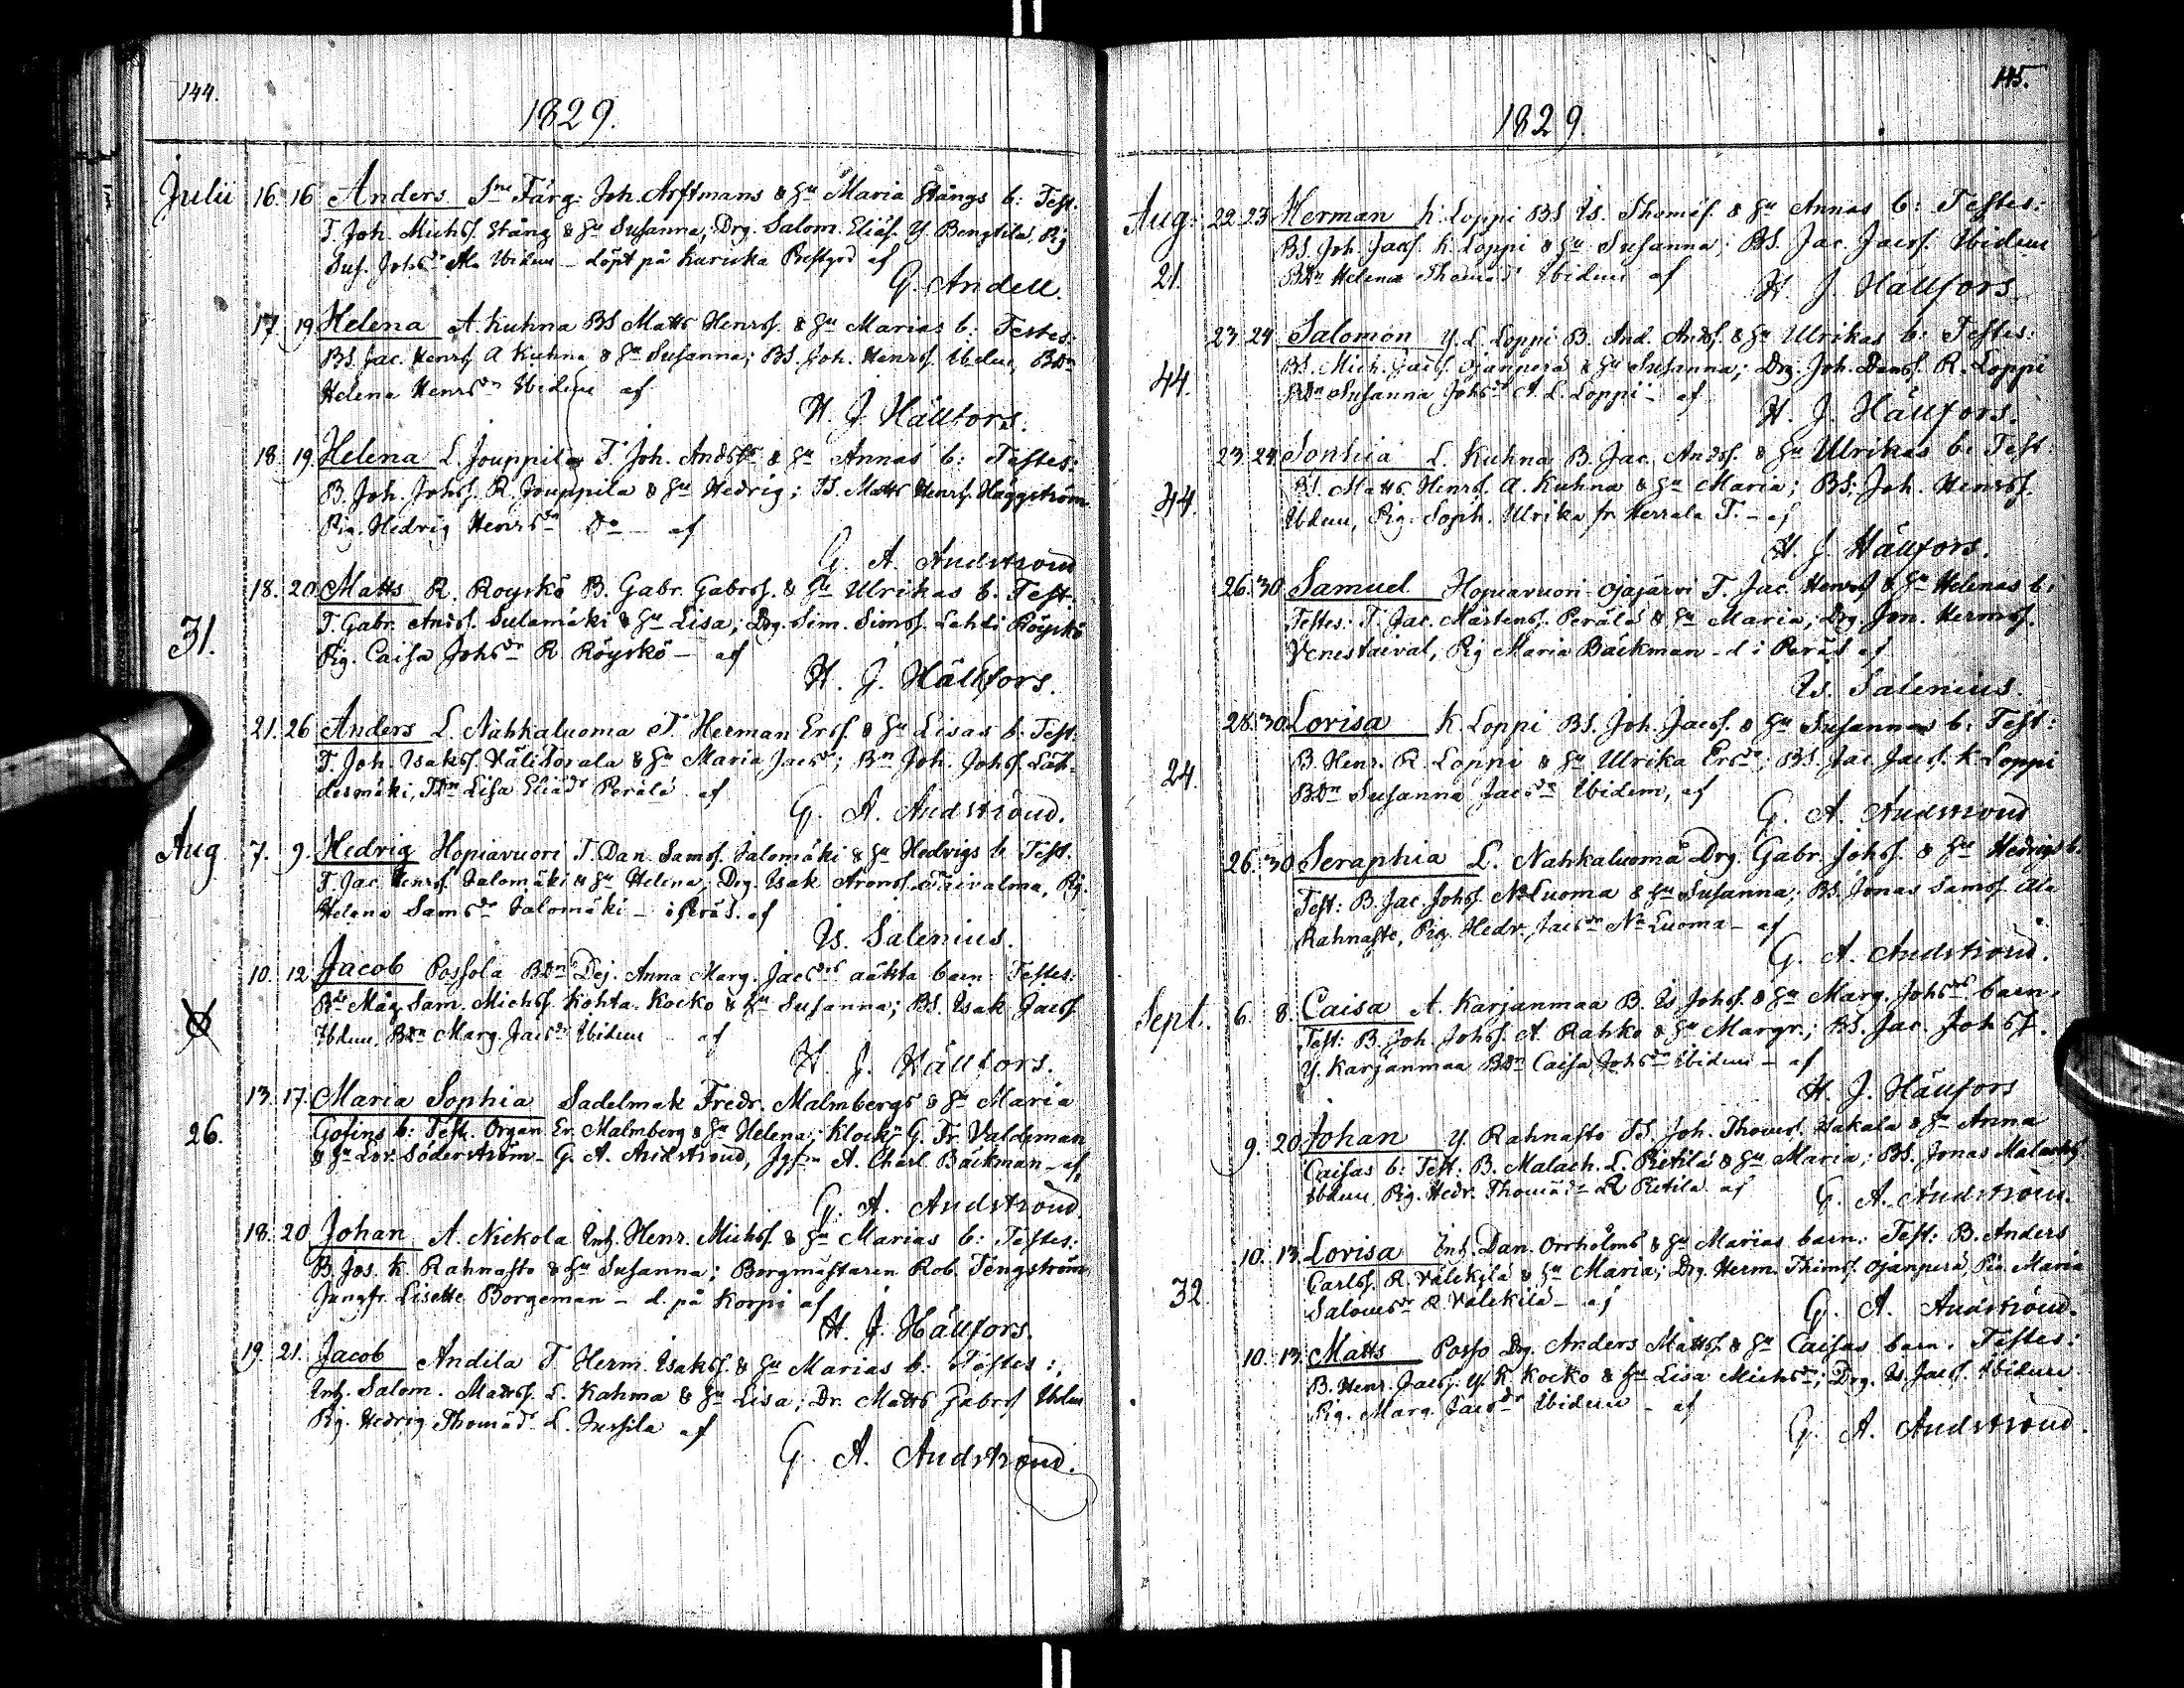 144.
1829.
Julii 16. 16 Anders Sne Färg: Joh. Arftmans & Hu Maria Stångs b: Test.
T. Joh. Michsf. Stång & Hu Susanna; Drg. Salom. Eliäs. Y. Bengtila, Pig
Sus. Johsdr Ala Ibidem – döpt på Kurika Prestgrd af
G. Andell.
17. 19 Helena A. Kuhna BS Matts Henrsf. & Hu Marias b: Testes:
BS. Jac. Henrsf A Kuhna & Hu Susanna; BS. Joh. Henrsf. Ibdem, BDr
Helena Henrsdr Ibidem af
H. J. Hällfors.
18. 19. Helena L. Jouppila T. Joh. Andssf & Hu Annas b: Testes:
B. Joh. Johsf. R. Jouppila & Hu Hedvig; TS. Matts Henrsf. Häggström
Pig. Hedvig Henrsdr Do – af
G. A. Andström
18. 20 Matts R. Röyskö B. Gabr. Gabrsf. & Hu Ulrikas b. Test:
31.
T. Gabr. Andsf. Sulamäki & Hu Lisa; Drg. Sim. Simsf. Lahdi Röyskö
Pig. Caisa Johsdr R. Röyskö – af
H. J. Hällfors.
21. 26 Anders L. Nahkaluoma T. Herman Ersf & Hu Lisas b. Test:
T. Joh. Isaksf. Välitosala & Hu Maria Jacsdr; Bm Joh. Johsf. Läh-
desmäki, TDr Lisa Eliädr Perälä af
G. A. Andström.
Aug 7. 9. Hedvig Hopiavuori T. Dan. Samsf. Jalomäki & Hu Hedvigs b Test.
T. Jac. Henrsf. Jalomäki & Hu Helena; Drg. Isak Aronsf. Taivalma, Pig.
Helena Samsdr Jalomäki – i Peräs. af
Is. Salenius.
10. 12 Jacob Possola BDrs Dej. Anna Marg. Jacsdrs oäkta barn Testes:
Bds Måg Sam. Michsf. Kohta Kocko & Hu Susanna; BS. Isak Jacsf
Ibdem, BDr Marg. Jacsdr Ibidem af
H. J. Hällfors.
13. 17. Maria Sophia Sadelmak Fredr. Malmbergs & Hu Maria
26.
Gosins b: Test. Organ Er. Malmberg & Hu Helena; Klock. G. Fr. Valdeman
& Hu Lov. Söderström – G. A. Andström, Jgfr A. Charl. Bäckman – af
G. A. Andström
18. 20 Johan A. Nickola Inh. Henr. Michsf. & Hu Marias b: Testes:
B. Jos. K. Rahnasto & Hu Susanna; Borgmästaren Rob. Tengström
Jungfr. Lisette Borgeman – d. på Korpi af
H. J. Hällfors.
19. 21. Jacob Andila T Herm. Isaksf. & Hu Marias b: Testes:
Inh. Salom. Mattsf. L. Kahma & Hu Lisa; Dr. Matts Gabrsf Ibdem
Pig. Hedvig Thomädr L. Jussila af
G. A. Andström.
145.
1829.
Aug: 22. 23 Herman K. Loppi BS Is. Thomäs. & Hu Annas b: Testes:
BS. Joh. Jacsf. K. Loppi & Hu Susanna; BS. Jac. Jacsf. Ibidem
21.
BDr Helena Thomädr Ibidem af
H. J. Hällfors
23. 24 Salomon Y. L. Loppi B. And. Andsf. & Hu Ulrikas b: Testes:
BS. Mich. Jacsf. Ojanperä & Hu Susanna; Drg. Joh. Dansf. R. Loppi
44.
BDr Susanna Johsdr A. L. Loppi – af
H. J. Hällfors.
23. 24. Sophia L. Kuhna B. Jac. Andsf. & Hu Ulrikas b: Test.
BS. Matts Henrsf. A. Kuhna & Hu Maria; BS. Joh. Henrsf.
44.
Ibdem, Pig. Soph. Ulrika fr Herrala T. – af
H. J. Hällfors.
26. 30 Samuel Hopiavuori Ojajärvi T. Jac. Henrsf & Hu Helenas b:
Testes: T. Jac. Mårtensf. Perälä & Hu Maria; Drg. Jon. Hermsf.
Venestaival, Pig Maria Bäckman – d i Peräs af
Is. Salenius.
28. 30 Lovisa K Loppi BS. Joh. Jacsf. & Hu Susannas b: Test:
B. Henr. R. Loppi & Hu Ulrika Ersdr; BS. Jac Jacsf. K Loppi
24.
BDr Susanna Jacsdr Ibidem, af
G. A. Andström
26. 30 Seraphia L. Nahkaluoma Drg. Gabr. Johsf. & Hu Hedvigs b.
Test: B. Jac. Johsf. Na Luoma & Hu Susanna; BS. Jonas Samsf. Ala
Rahnasto, Pig. Hedv. Jacsdr Na Luoma – af
G. A. Andström.
Sept. 6. 8. Caisa A. Karjanmaa B. Is Johsf. & Hu Marg. Johsdrs barn.
Test: B. Joh. Johsf. A. Rahko & Hu Margr.; BS. Jac. Johsf.
Y. Karjanmaa BDr Caisa Johsdr Ibidem – af
H. J. Hällfors
9. 20 Johan Y. Rahnasto TS. Joh. Thomsf. Hakala & Hu Anna
Caisas b: Test: B. Malach. L. Pietilä & Hu Maria; BS. Jonas Malachsf
Ibdem, Pig. Hedv. Thomädr R Pietila af
G. A. Andström.
10. 13. Lovisa Inh. Dan. Orrholms & Hu Marias barn. Test: B. Anders
Carlsf. R. Välikylä & Hu Maria; Drg. Herm. Thimsf. Ojanperä, Pig. Maria
32.
Salomsdr R. Välikilä – af
G. A. Andström.
10. 13. Matts Posso Drg Anders Mattsf. & Hu Caisas barn. Testes:
B. Henr. Jacsf. Y. K. Kocko & Hu Lisa Michsdr; Drg. Is. Jacsf. Ibidem
Pig. Marg. Jacsdr Ibidem – af
G. A. Andström.